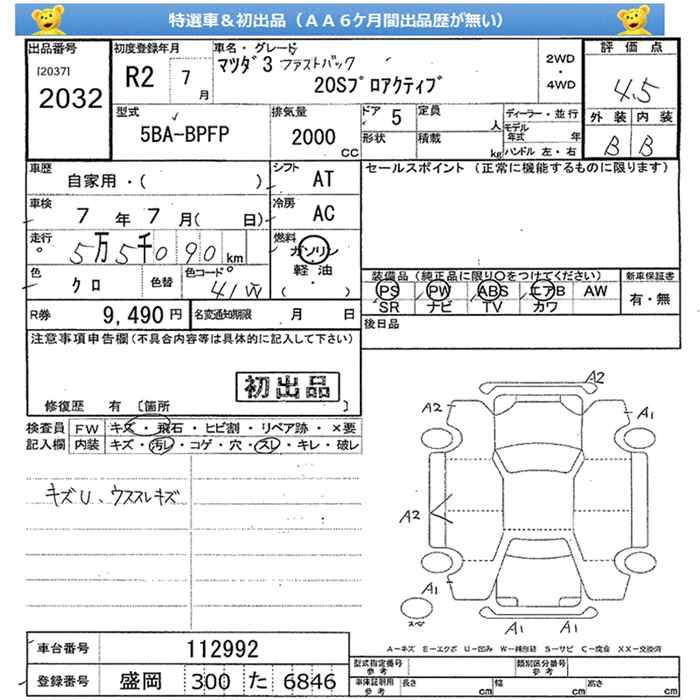 特選車＆初出品（ＡＡ６ケ月間出品歴が無い）
出品番号
[2037]
2032
初度登録年月
R2 7月
車名・グレード
マツダ3 ファストバック
20Sプロアクティブ
2WD
・
4WD
評価点
4.5
外装 内装
B B
型式
5BA-BPFP
排気量
2000 CC
ドア 5
定員 人
形状
積載 kg
ディーラー・並行
モデル年式 年
ハンドル 左・右
車歴
自家用・( )
シフト
AT
セールスポイント（正常に機能するものに限ります）
車検
7年7月( 日)
冷房
AC
走行
5万5千090km
燃料
ガソリン
軽油
( ・ )
色
クロ
色替
色コード
41W
装備品（純正品に限り○をつけてください）
PS PW ABS エアB AW
SR ナビ TV カワ
新車保証書
有・無
R券 9,490円
名変通知期限 月 日
後日品
注意事項申告欄(不具合内容等は具体的に記入して下さい)
初出品
修復歴 有 [箇所 ]
検査員記入欄
FW キズ・飛石・ヒビ割・リペア跡・×要
内装 キズ・汚レ・コゲ・穴・スレ・キレ・破レ
キズU、ウススレキズ
A2
A2
A1
A2
A1
A1
A1
スペア
A－キズ E－エクボ U－凹み W－補修跡 S－サビ C－腐食 XX－交換済
車台番号 112992
登録番号 盛岡 300 た 6846
型式指定番号 参考
類別区分番号 参考
車体証明用 参考
長さ cm 幅 cm 高さ cm